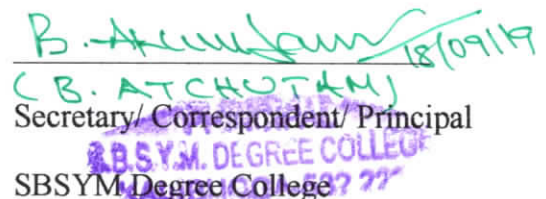 B. Atchutam 18/09/19
(B. ATCHUTAM)
Secretary/ Correspondent/ Principal
S.B.S.Y.M. DEGREE COLLEGE
SBSYM Degree College